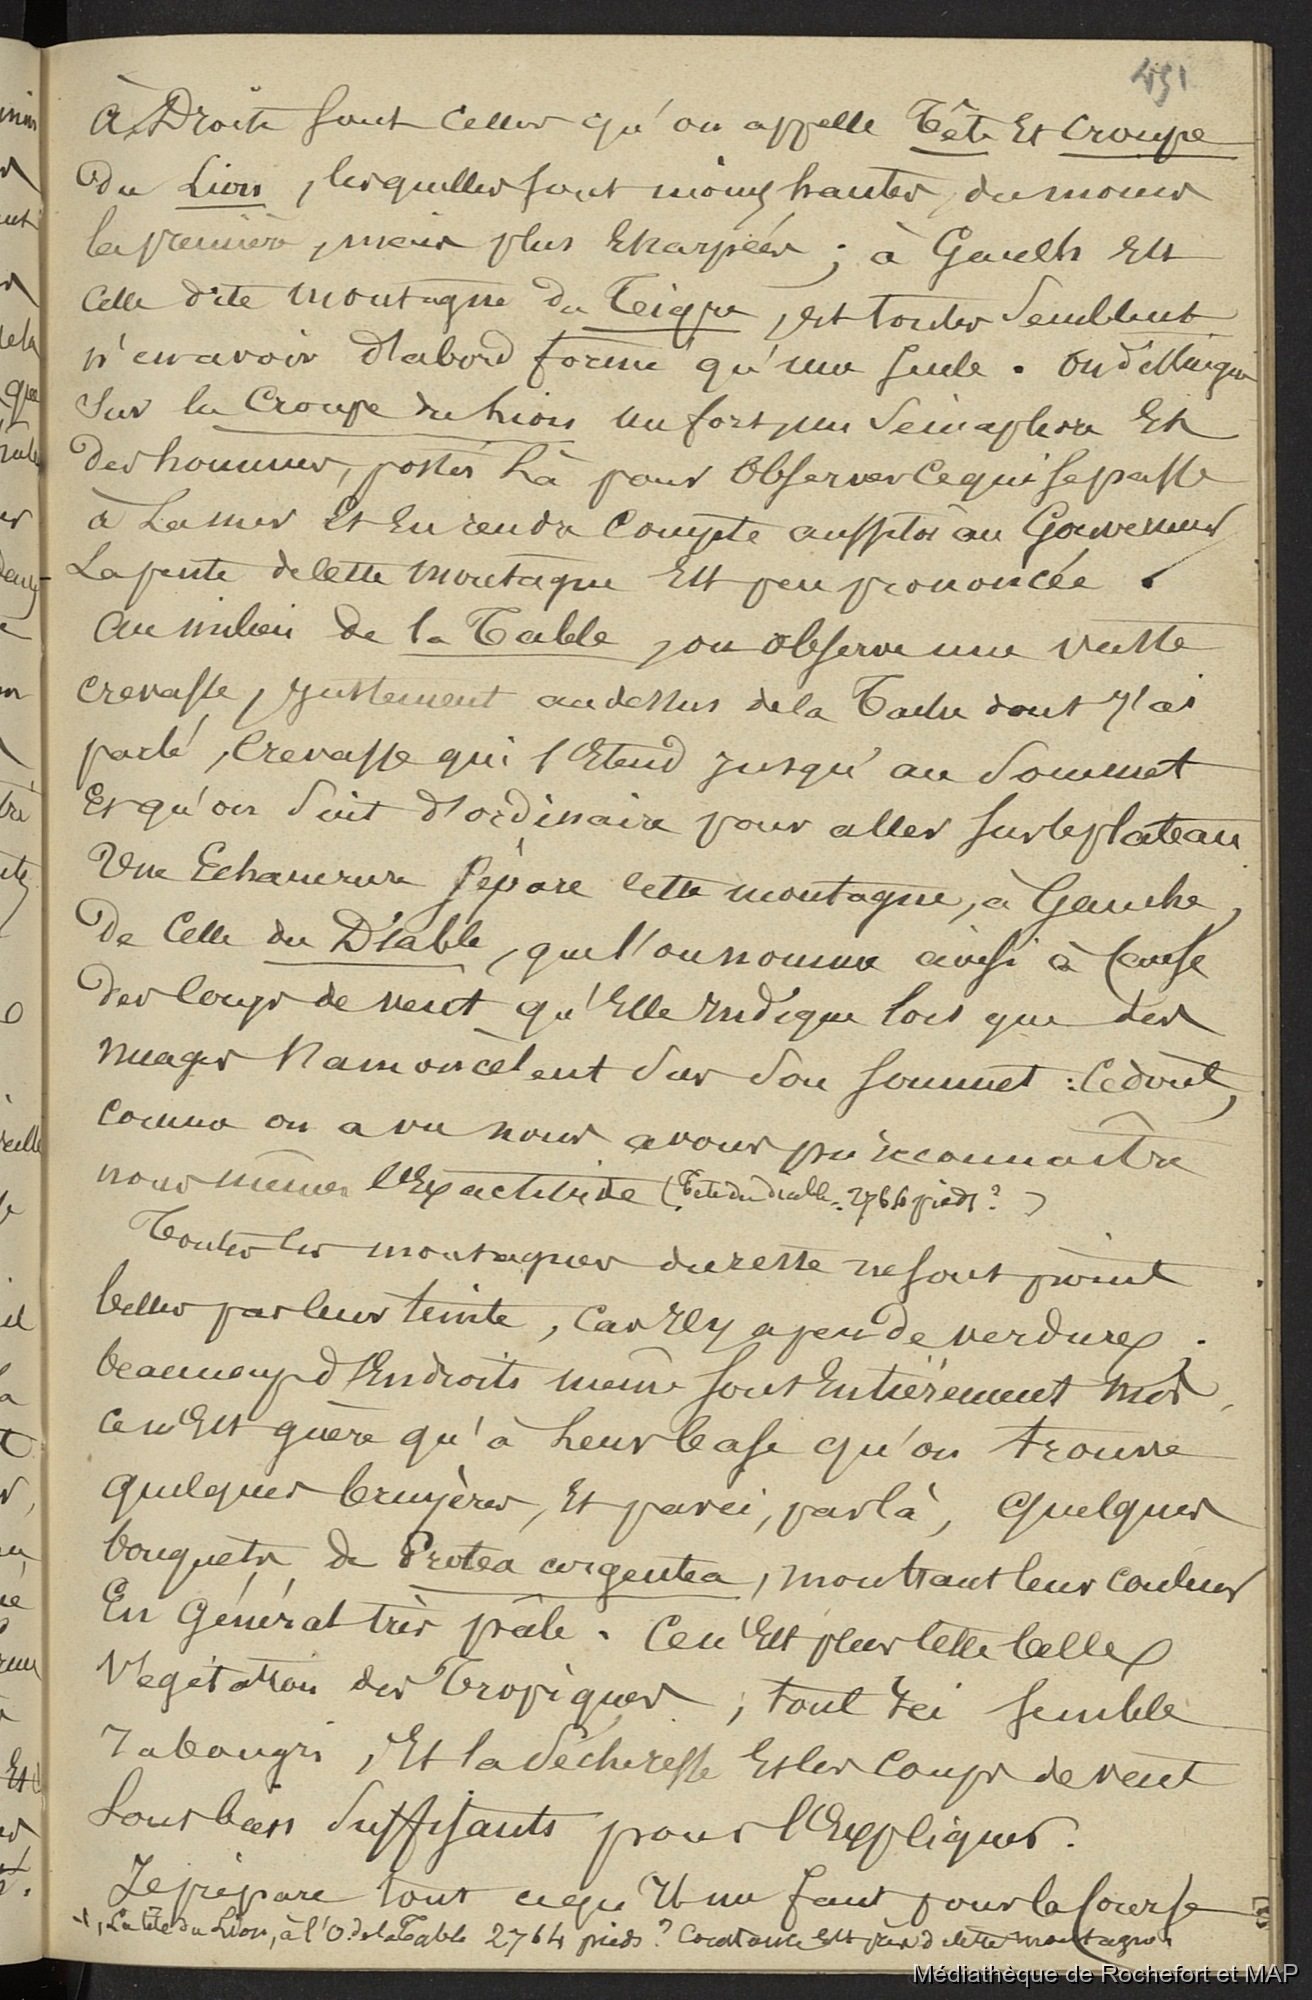 451
à Droite sont celles qu'on appelle Tête Et Croupe
du Lion, lesquelles sont moins hautes, du moins
la première, mais plus Ekarpées ; à Gauche Est
Celle dite montagne du Teigre, Et toutes Semblent
n'en avoir d'abord formé qu'une seule. On distingue
Sur la Croupe du Lion un fort, un Sémaphore Et
des hommes, postés Là pour Observer ce qui se passe
à La mer Et En rendre Compte aussitôt au Gouverneur
La pente de Cette montagne Est peu prononcée.
Au milieu de la Table, on observe une vaste
crevasse, Justement au dessus de la Tache dont J'ai
parlé, Crevasse qui s'Etend Jusqu'au Sommet
Et qu'on Suit d'ordinaire pour aller sur le plateau
Une Echancrure sépare Cette montagne, à Gauche,
De Celle du Diable, que l'on nomme ainsi à Cause
des Coups de vent qu'Elle Indique lors que des
nuages S'amoncèlent Sur Son sommet : Ce dont,
comme on a vu nous avons pu reconnaître
nous mêmes l'Exactitude (Tête du diable. 2764 pieds ? )
Toutes les montagnes du reste ne sont point
belles par leur teinte, Car Il y a peu de verdure ;
beaucoup d'Endroits même sont Entièrement nus,
ce n'Est guère qu'à Leur base qu'on trouve
quelques bruyères, Et parci, parlà, quelques
bouquets de Protea argentea, montrant leur couleur
En Général très pâle. Ce n'Est plus Cette belle
Végétation des Tropiques ; tout Ici semble
rabougri, Et la Sécheresse Et les Coups de vent
Sont bien Suffisants pour l'Expliquer.
Je prépare tout ce qu'Il me faut pour la Course
+, La tête du Lion, à l'O. de la Table 2764 pieds ? Constance Est près de Cette montagne
Médiathèque de Rochefort et MAP